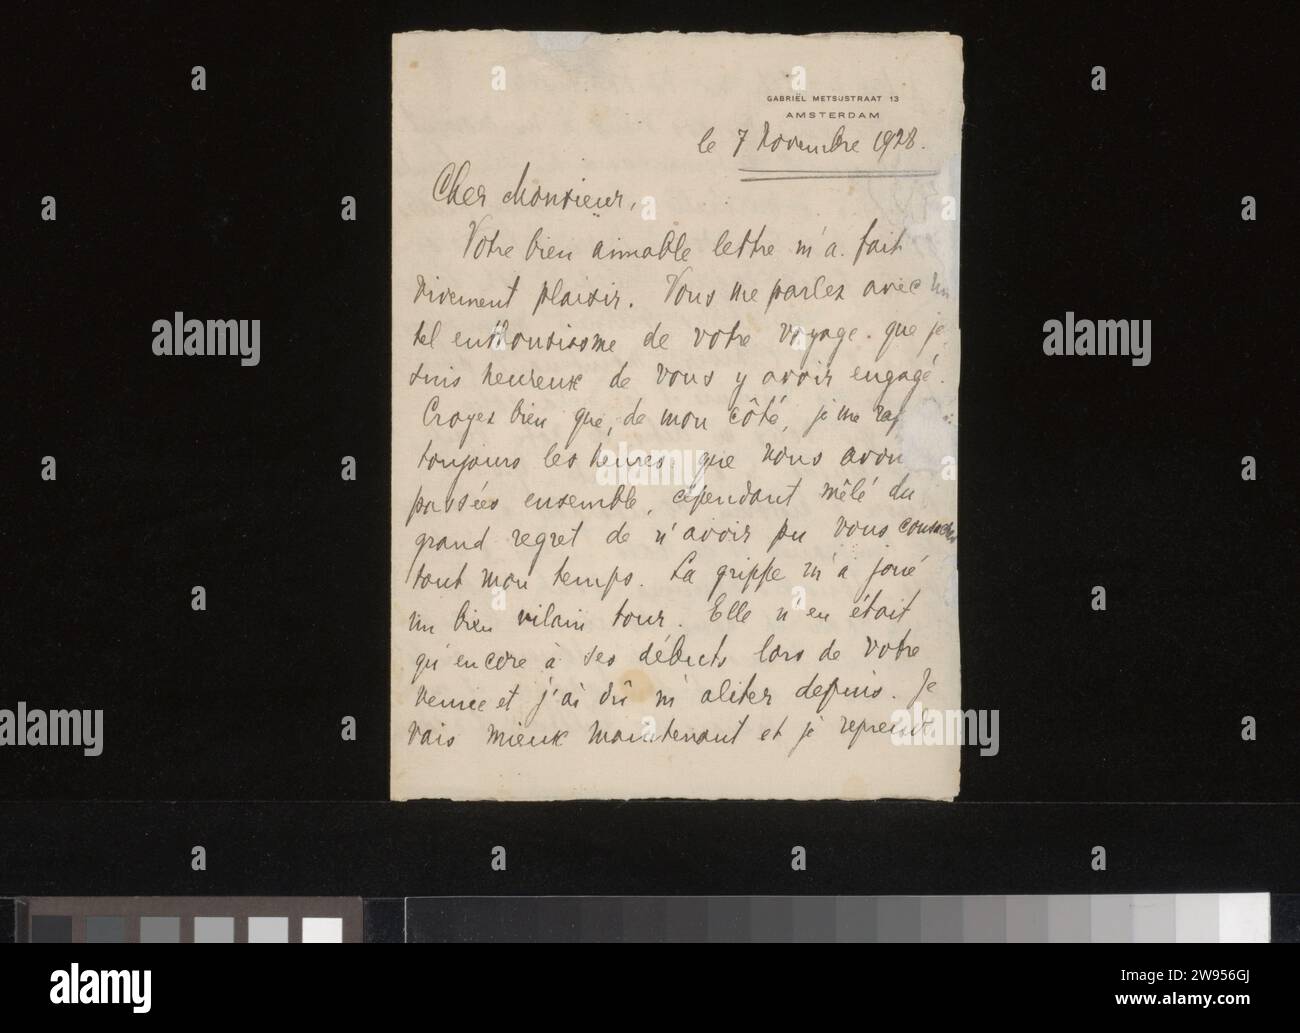 GABRIËL METSUSTRAAT 13
AMSTERDAM
le 7 Novembre 1928.
Cher Monsieur,
Votre bien aimable lettre m'a fait
vivement plaisir. Vous me parlez avec un
tel enthousiasme de votre voyage que je
suis heureux de vous y avoir engagé.
Croyez bien que, de mon côté, je me rap
toujours les heures que nous avon
passées ensemble, cependant mêlé du
grand regret de n'avoir pu vous consacrer
tout mon temps. La grippe m'a joué
un bien vilain tour. Elle n'en était
qu'encore à ses débuts lors de votre
venue et j'ai dû m'aliter depuis. Je
vais mieux maintenant et je reprends
alamy
alamy
alamy
alamy
alamy
alamy
Image ID: 2W956GJ
www.alamy.com